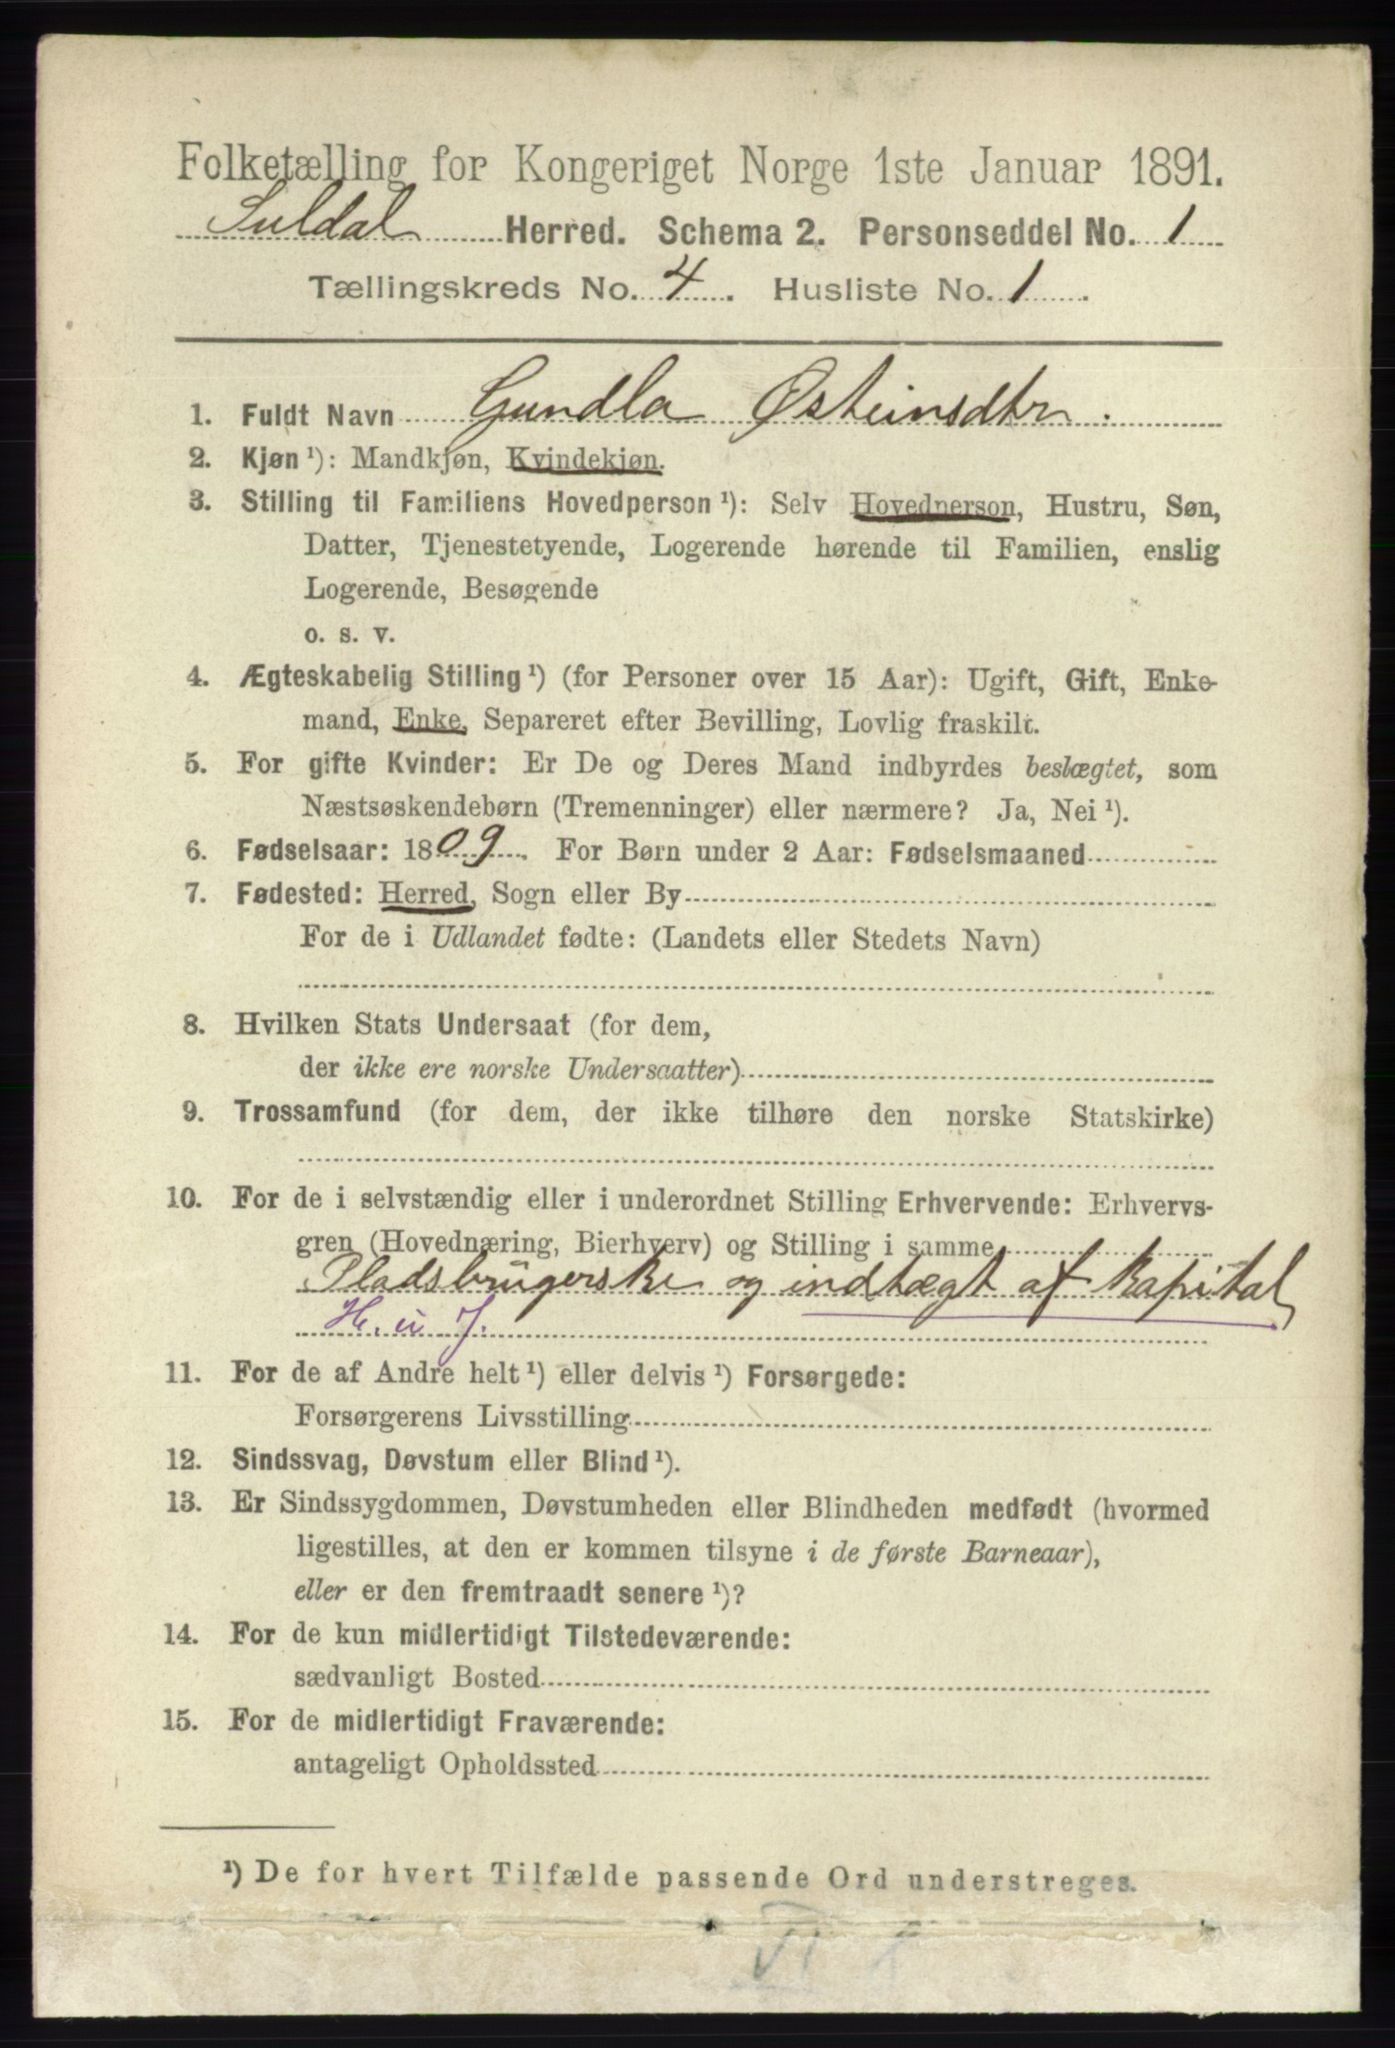 Folketælling for Kongeriget Norge 1ste Januar 1891.
Suldal Herred. Schema 2. Personseddel No. 1
Tællingskreds No. 4. Husliste No. 1.
1. Fuldt Navn Gundla Østeinsdtr.
2. Kjøn ¹): Mandkjøn, Kvindekjøn.
3. Stilling til Familiens Hovedperson ¹): Selv Hovedperson, Hustru, Søn,
Datter, Tjenestetyende, Logerende hørende til Familien, enslig
Logerende, Besøgende
o. s. v.
4. Ægteskabelig Stilling ¹) (for Personer over 15 Aar): Ugift, Gift, Enke-
mand, Enke, Separeret efter Bevilling, Lovlig fraskilt.
5. For gifte Kvinder: Er De og Deres Mand indbyrdes beslægtet, som
Næstsøskendebørn (Tremenninger) eller nærmere? Ja, Nei ¹).
6. Fødselsaar: 1809. For Børn under 2 Aar: Fødselsmaaned
7. Fødested: Herred, Sogn eller By
For de i Udlandet fødte: (Landets eller Stedets Navn)
8. Hvilken Stats Undersaat (for dem,
der ikke ere norske Undersaatter)
9. Trossamfund (for dem, der ikke tilhøre den norske Statskirke)
10. For de i selvstændig eller i underordnet Stilling Erhvervende: Erhvervs-
gren (Hovednæring, Bierhverv) og Stilling i samme
Pladsbrugerske og indtægt af Kapital
H. u J.
11. For de af Andre helt ¹) eller delvis ¹) Forsørgede:
Forsørgerens Livsstilling
12. Sindssvag, Døvstum eller Blind ¹).
13. Er Sindssygdommen, Døvstumheden eller Blindheden medfødt (hvormed
ligestilles, at den er kommen tilsyne i de første Barneaar),
eller er den fremtraadt senere ¹)?
14. For de kun midlertidigt Tilstedeværende:
sædvanligt Bosted
15. For de midlertidigt Fraværende:
antageligt Opholdssted
¹) De for hvert Tilfælde passende Ord understreges.
VI